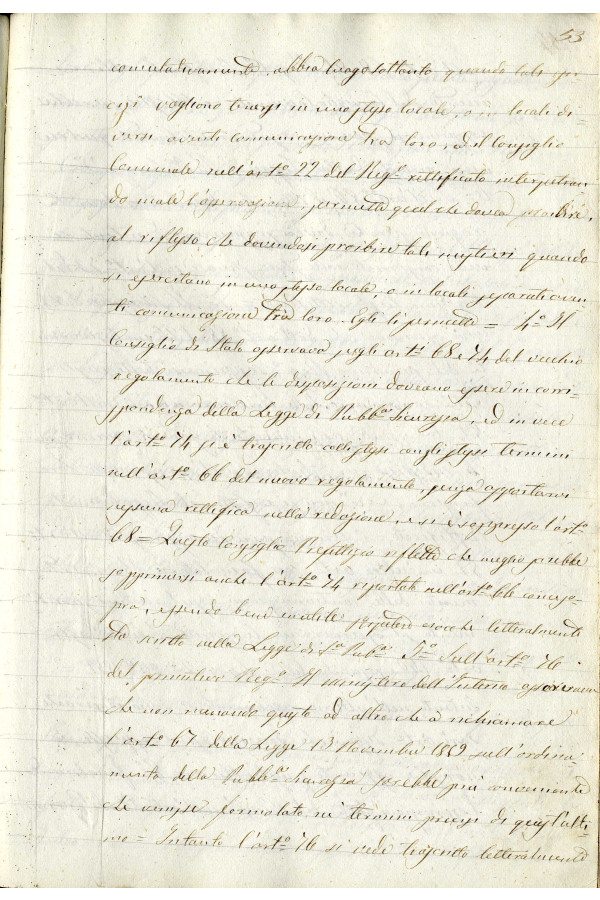 53
cumulativamente, abbia luogo soltanto quando tali
si vogliono tenersi in uno stesso locale, o in locali di-
versi aventi comunicazione tra loro, ed il Consiglio
Comunale nell'artº 22 del Regº rettificato interpetran-
do male l'osservazione, permette quel che dovea proibire,
al riflesso, che dovendosi proibire tali mestieri quando
si esercitano in uno stesso locale, o in locali separati aven-
ti comunicazione tra loro. Egli li permette = 4º Il
Consiglio di Stato osservava sugli artˡ 68 e 74 del vecchio
regolamento che le disposizioni doveano essere in corri-
spondenza della Legge di Pubbᶜᵃ Sicurezza, ed in vece
l'artº 74 si è trascritto cogli stessi termini
nell'artº 66 del nuovo regolamento, senza apportarvi
nessuna rettifica nella redazione, e si è soppresso l'artº
68 = Questo Consiglio riflette che meglio sarebbe
sopprimersi anche l'artº 74 riportato nell'artº 66
pra, essendo bene inutile ripetere ciocchè letteralmente
sta scritto nella Legge di Sᵃ Pubᵃ 5º Sull'artº 76
del primitivo Regº Il Ministero dell'Interno osservava
che non menando questo ad altro che a richiamare
l'artº 67 della Legge 13 Novembre 1859 sull'ordina-
mento della Pubbᶜᵃ Sicurezza, sarebbe più conveniente
che venisse formolato ne' termini precisi di quest'ulti-
mo = Intanto l'artº 76 si vede trascritto letteralmente